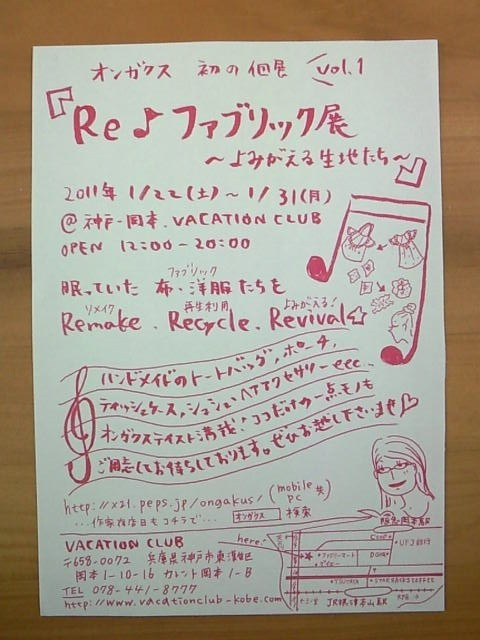 オンガクス 初の個展 vol.1
『Re♪ファブリック展
〜よみがえる生地たち〜』
2011年 1/22(土)〜1/31(月)
@神戸・岡本、VACATION CLUB
OPEN 12:00-20:00
ファブリック
眠っていた 布・洋服たちを
リメイク 再生利用 よみがえる!
Remake、Recycle、Revival☆
ハンドメイドのトートバッグ、ポーチ、
ティッシュケース、シュシュ、ヘアアクセサリーetc...
オンガクステイスト満載!ココだけの一点モノも
ご用意してお待ちしております。ぜひお越し下さいませ♡
http://x21.peps.jp/ongakus/(mobile pc 共)
オンガクス 検索
VACATION CLUB
〒658-0072 兵庫県神戸市東灘区
岡本1-10-16 カレント岡本1-B
TEL 078-441-8777
http://www.vacationclub-kobe.com/
here!
阪急岡本駅
UFJ銀行
ファミリーマート
ダイエー
TSUTAYA
STARBUCKS COFFEE
JR摂津本山駅